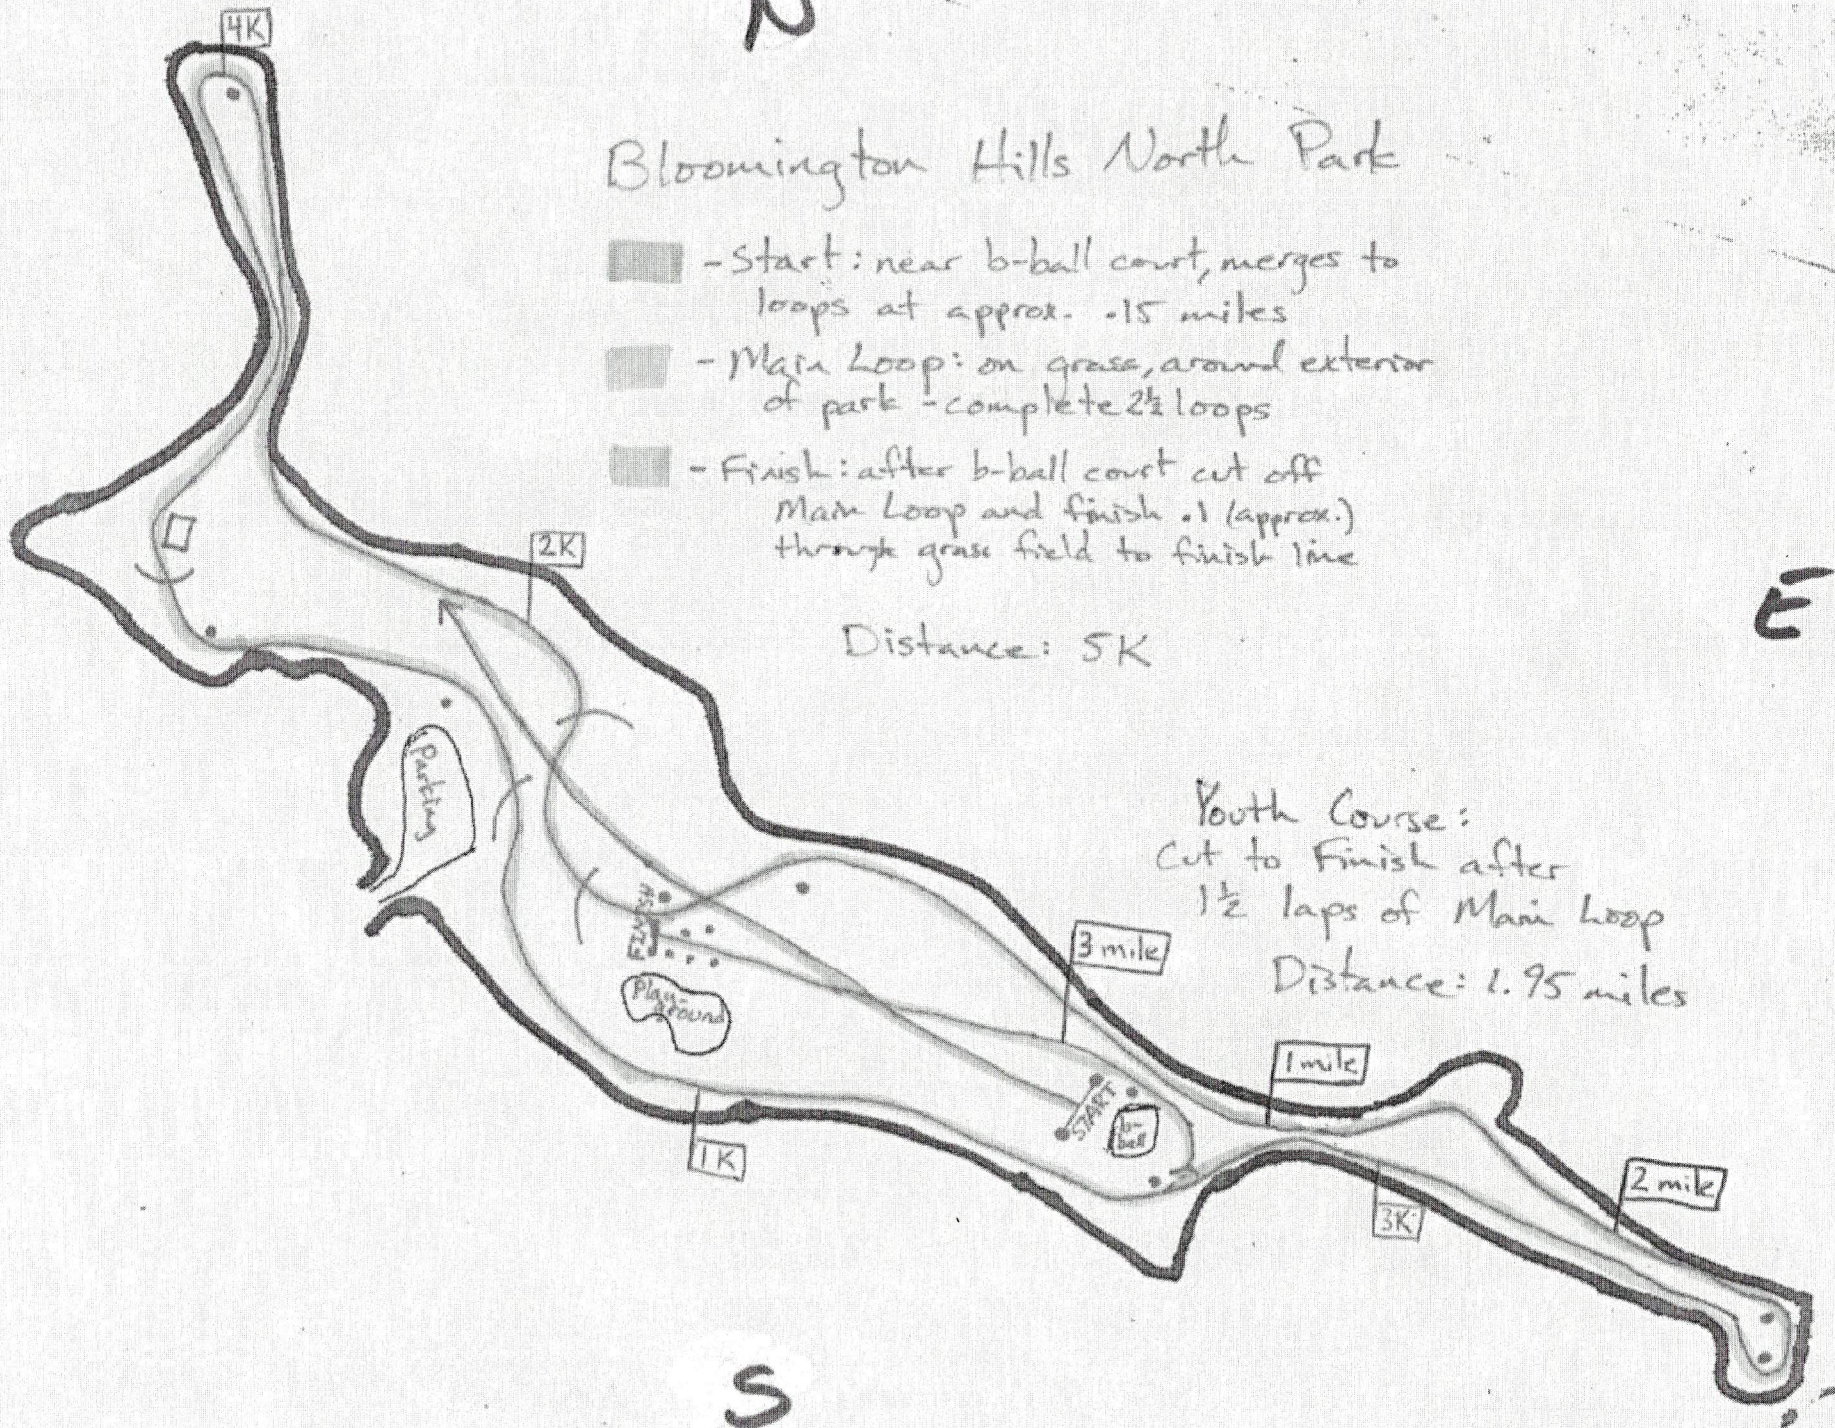 N
4K
Bloomington Hills North Park
- Start: near b-ball court, merges to
loops at approx. .15 miles
- Main Loop: on grass, around exterior
of park - complete 2½ loops
- Finish: after b-ball court cut off
Main Loop and finish .1 (approx.)
through grass field to finish line
Distance: 5K
2K
E
Parking
Youth Course:
Cut to Finish after
1½ laps of Main Loop
Distance: 1.95 miles
FINISH
3 mile
Play-
ground
1 mile
START
b-
ball
1K
2 mile
3K
S